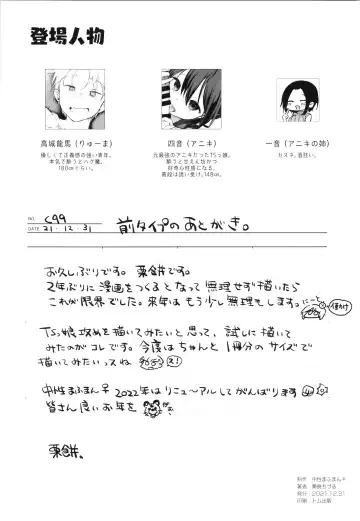 登場人物
高城龍馬（りゅーま）
優しくて正義感の強い青年。
本気で酔うとハゲ魔。
180cmぐらい。
四音（アニキ）
元最強のアニキだったTSっ娘。
酔うと甘えん坊かつ
好奇心旺盛になる。
普段は誘い受け。148cm。
一音（アニキの姉）
カズネ。酒強い。
NO. C99
DATE 21・12・31
前タイプのあとがき。
お久しぶりです。栗餅です。
2年ぶりに漫画をつくるとなって無理せず描いたら
これが限界でした。来年はもう少し無理をします。にーと
TSっ娘攻めを描いてみたいと思って、試しに描いて
みたのがコレです。今度はちゃんと1冊分のサイズで
描いてみたいっスね
え!
中性まふまん♀2022年はリニューアルしてがんばります
皆さん良いお年を
栗餅。
制作 中性まふまん♀
著者 栗餅ちづる
発行 2021.12.31
印刷 トム出版